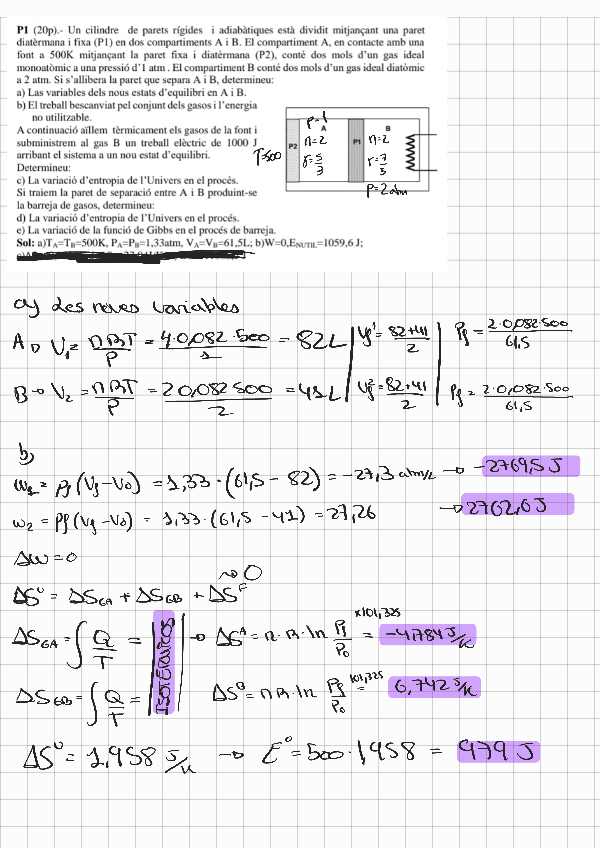 P1 (20p).- Un cilindre de parets rígides i adiabàtiques està dividit mitjançant una paret
diatèrmana i fixa (P1) en dos compartiments A i B. El compartiment A, en contacte amb una
font a 500K mitjançant la paret fixa i diatèrmana (P2), conté dos mols d'un gas ideal
monoatòmic a una pressió d'1 atm . El compartiment B conté dos mols d'un gas ideal diatòmic
a 2 atm. Si s'allibera la paret que separa A i B, determineu:
a) Las variables dels nous estats d'equilibri en A i B.
b) El treball bescanviat pel conjunt dels gasos i l'energia
no utilitzable.
A continuació aïllem tèrmicament els gasos de la font i
subministrem al gas B un treball elèctric de 1000 J
arribant el sistema a un nou estat d'equilibri.
Determineu:
c) La variació d'entropia de l'Univers en el procés.
Si traiem la paret de separació entre A i B produint-se
la barreja de gasos, determineu:
d) La variació d'entropia de l'Univers en el procés.
e) La variació de la funció de Gibbs en el procés de barreja.
Sol: a)TA=TB=500K, PA=PB=1,33atm, VA=VB=61,5L; b)W=0,EINUTIL=1059,6 J;
P=1
A B
P2 n=2 P1 n=2
T=500 γ=5/3 γ=7/5
P=2atm
a) Les noves variables
A → V1 = nRT/P = 4·0,082·500/1 = 82L | Vf1 = 82+41/2 | Pf = 2·0,082·500/61,5
B → V2 = nRT/P = 2·0,082·500/2 = 41L | Vf2 = 82+41/2 | Pf = 2·0,082·500/61,5
b)
W1 = Pf (Vf-V0) = 1,33·(61,5-82) = -27,3 atm/L → -2769,5 J
W2 = Pf (Vf-V0) = 1,33·(61,5-41) = 27,26 → 2762,6 J
ΔW=0
ΔSU = ΔSGA + ΔSGB + ΔSF →0
ΔSGA = ∫ Q/T = | ISOTÉRMICOS | → ΔSA = n·R·ln Pf/P0 x101,325 = -4,784 J/K
ΔSGB = ∫ Q/T = ΔSB = nR·ln Pf/P0 x101,325 = 6,742 J/K
ΔSU = 1,958 J/K → EU = 500·1,958 = 979 J